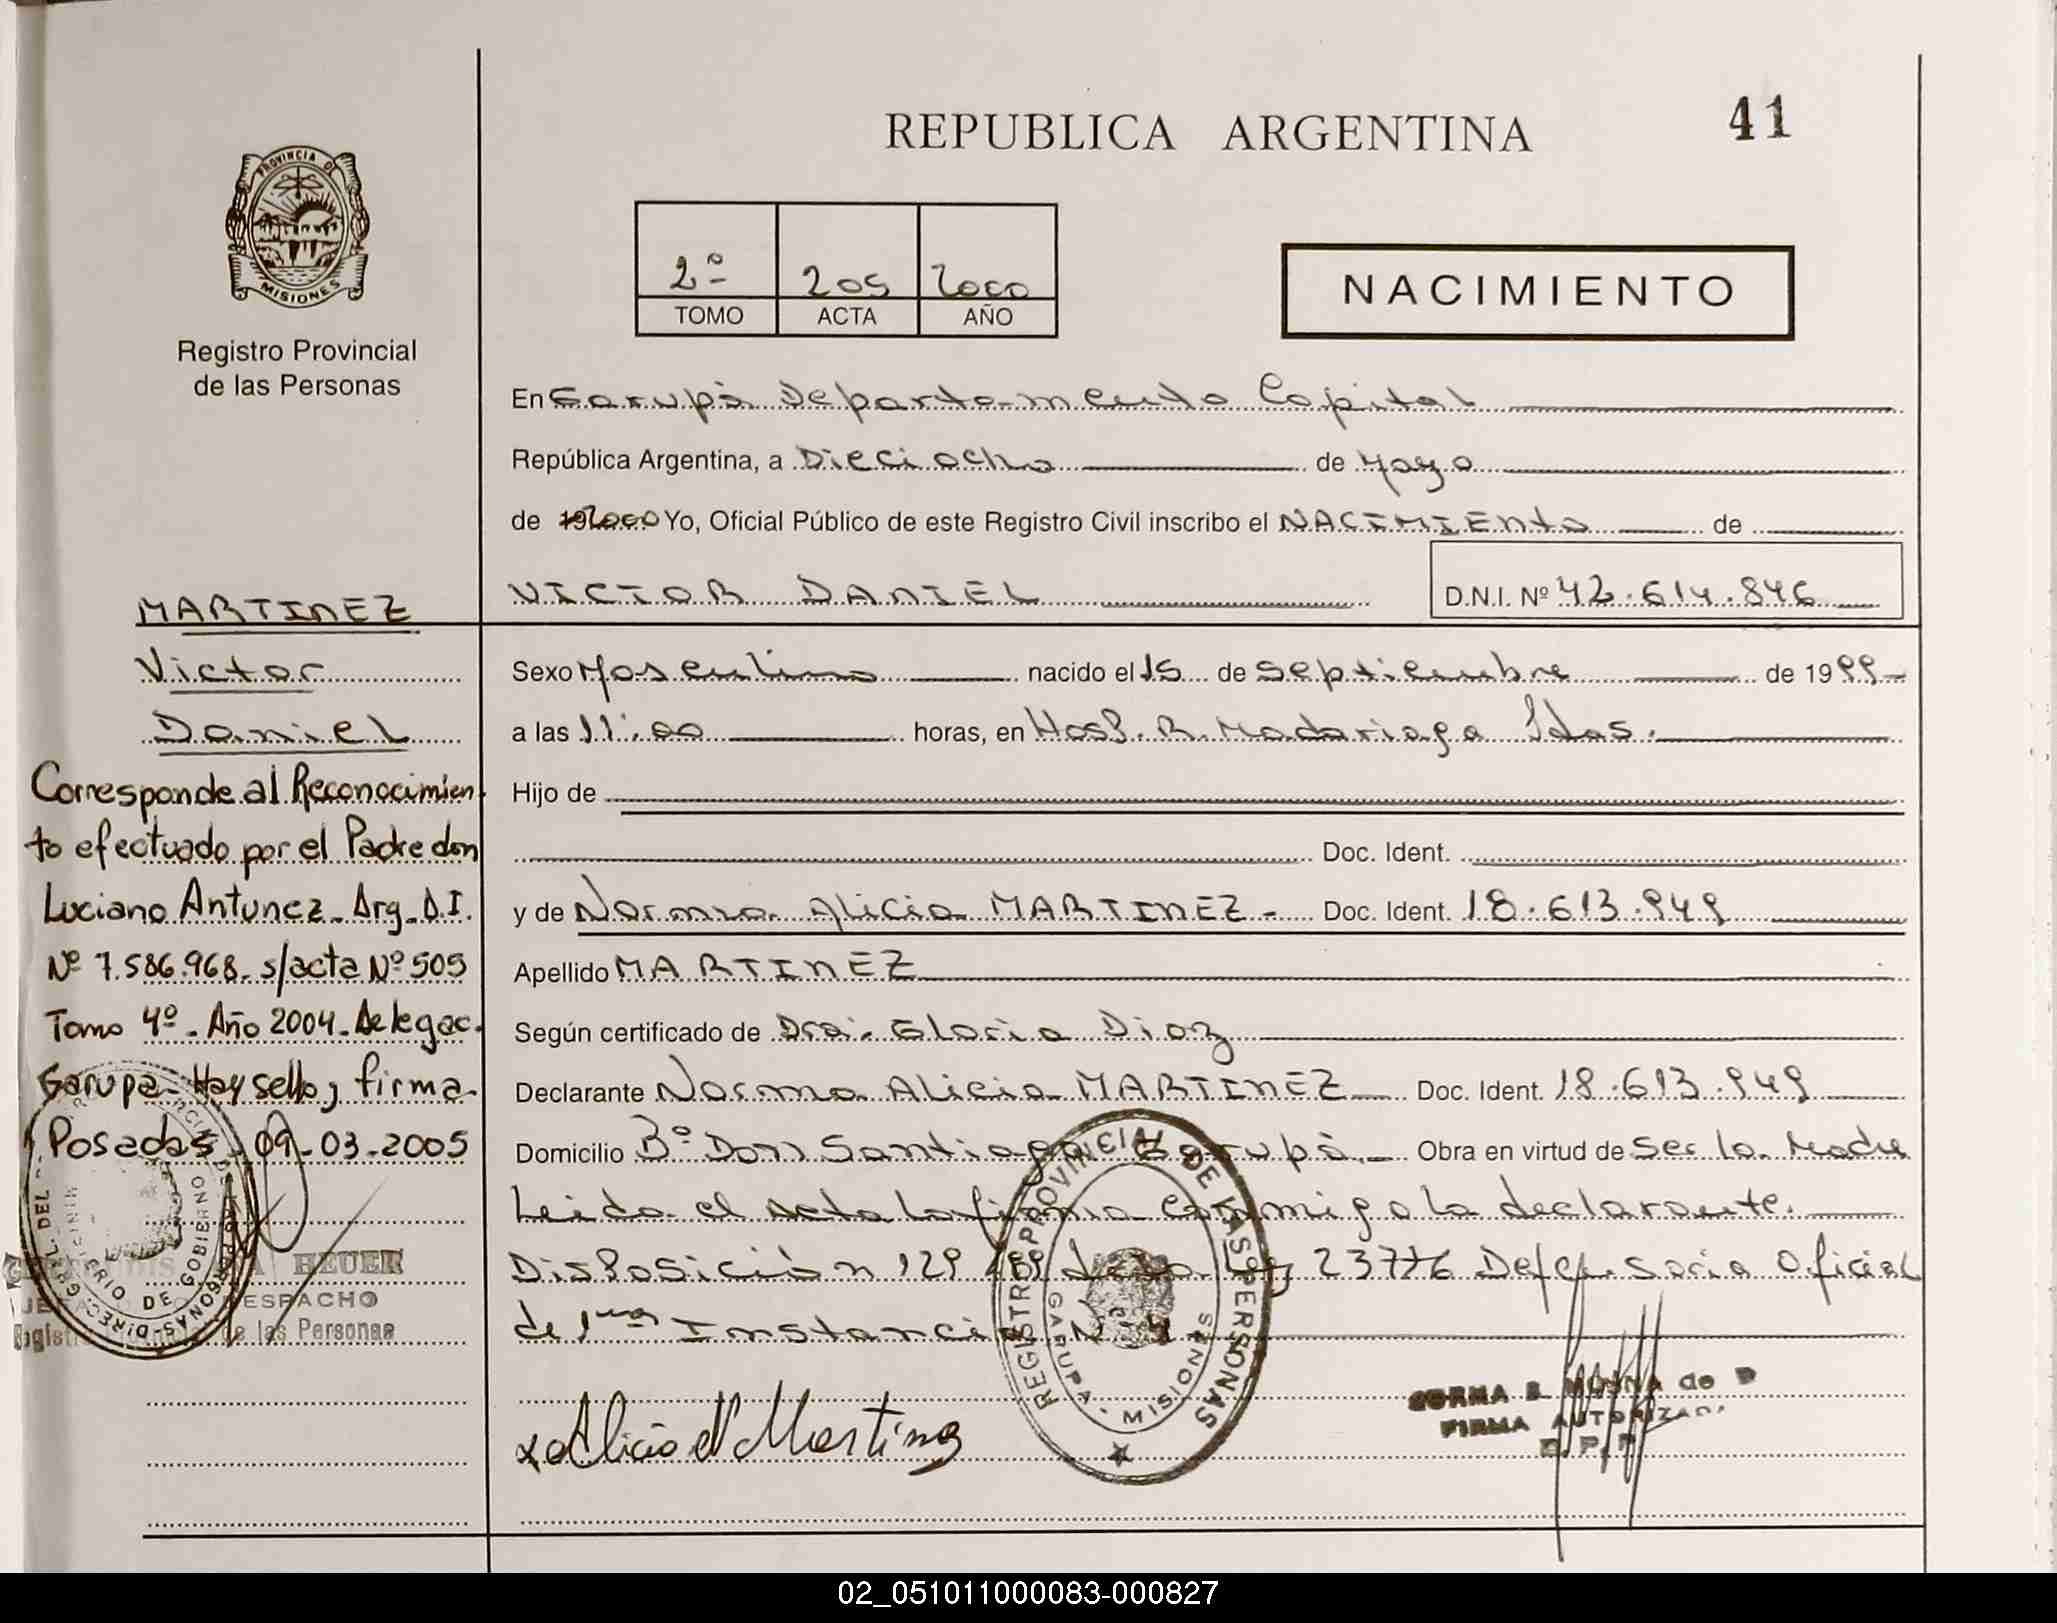 REPUBLICA ARGENTINA
41
PROVINCIA DE
MISIONES
Registro Provincial
de las Personas
2º 205 2000
TOMO ACTA AÑO
NACIMIENTO
En Garupà Departamento Capital
República Argentina, a Dieciocho de Mayo
de 192000 Yo, Oficial Público de este Registro Civil inscribo el NACIMIENTO de
VICTOR DANIEL D.N.I. Nº 42.614.846
MARTINEZ
Victor
Daniel
Corresponde al Reconocimien
to efectuado por el Padre don
Luciano Antunez - Arg - D.I.
Nº 7.586.968 - s/acta Nº 505
Tomo 4º - Año 2004 - Delegac.
Garupa - Hay sello y firma -
Posadas, 09-03-2005
HEUER
DESPACHO
de las Personas
Sexo Masculino nacido el 15 de Septiembre de 1999-
a las 11:00 horas, en Hosp. R. Madariaga Pdas.
Hijo de
Doc. Ident.
y de Norma Alicia MARTINEZ - Doc. Ident. 18.613.949
Apellido MARTINEZ
Según certificado de Dra. Gloria Diaz
Declarante Norma Alicia MARTINEZ Doc. Ident. 18.613.949
Domicilio Bº Don Santiago Garupà - Obra en virtud de Ser la Madre
Leida el Acta la firma conmigo la declarante.
Disposición 129/89 Ley 23776 Defensoria Oficial
de 1ra Instancia Nº 4
Alicia N Martinez
REGISTRO PROVINCIAL DE LAS PERSONAS
GARUPA - MISIONES
FIRMA AUTORIZADA
R.P.P.
02_051011000083-000827